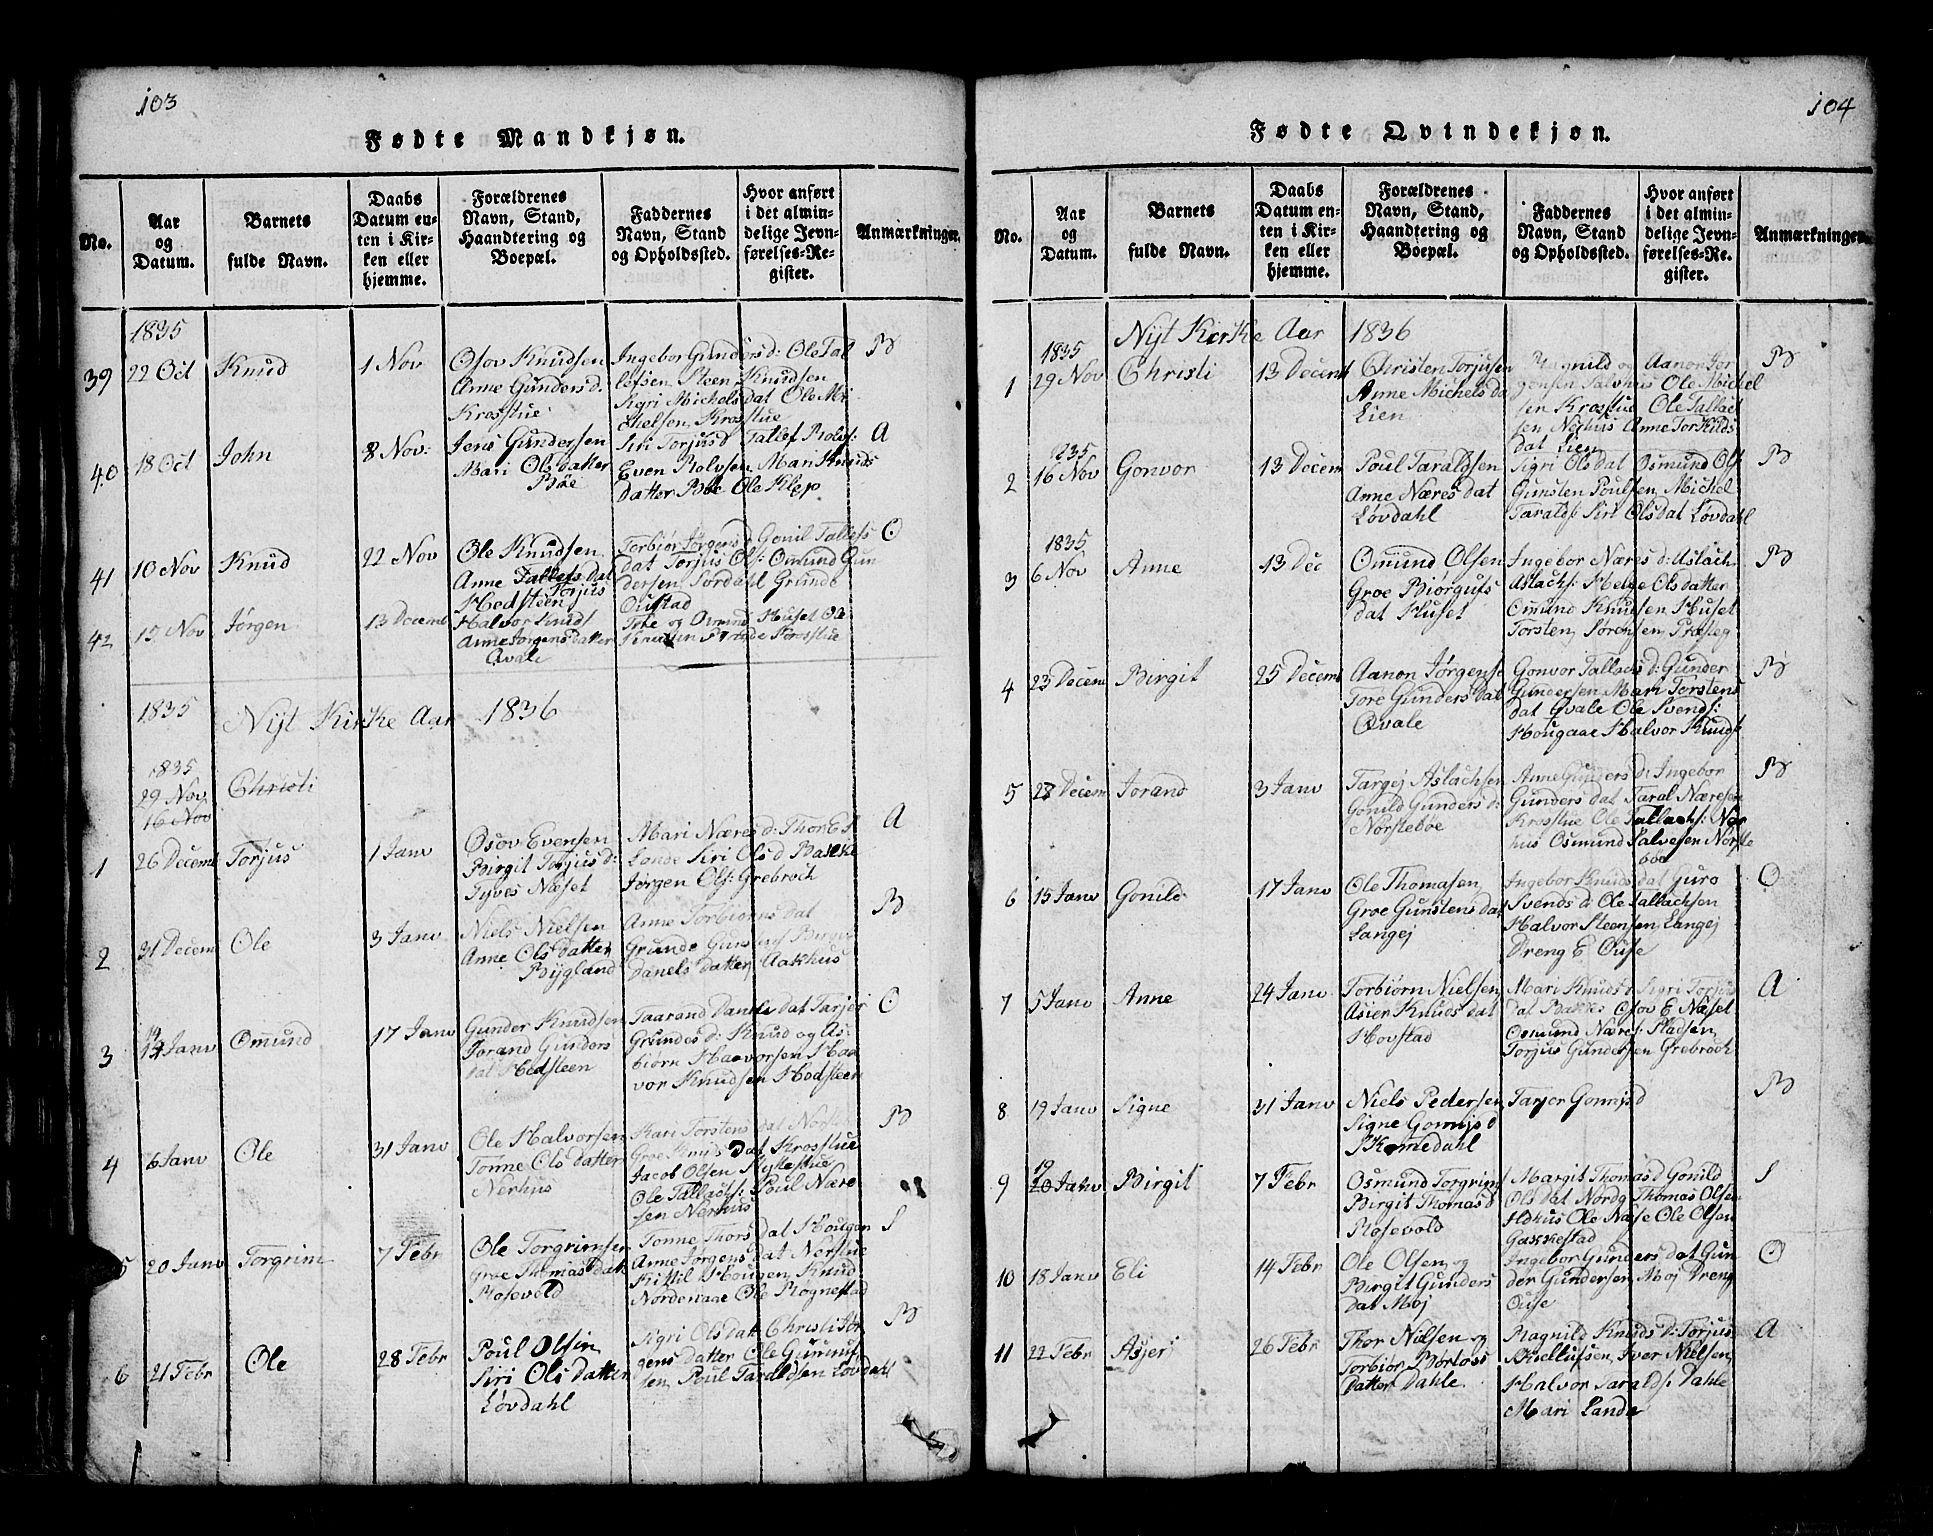 103
Fødte Mandkjøn.
No.
Aar
og
Datum.
Barnets
fulde Navn.
Daabs
Datum en-
ten i Kir-
ken eller
hjemme.
Forældrenes
Navn, Stand,
Haandtering og
Boepæl.
Faddernes
Navn, Stand
og Opholdssted.
Hvor anført
i det almin-
delige Jevn-
førelses-Re-
gister.
Anmærkninger.
1835
39 22 Oct Knud 1 Nov
Osov Knudsen
Anne Gunders d.
Krosstue
Ingebor Gunders d: Ole Tal
lefsen Steen Knudsen
Sigri Michels dat Ole Mi
chelsen, Krosstue
B
40 18 Oct John 8 Nov:
Jens Gundersen
Mari Ols datter
Bøe
Siri Torjus d Tallef Rolfs:
Even Rolvsen Mari Knuds
datter Bøe Ole Klep
A
41 10 Nov Knud 22 Nov
Ole Knudsen
Anne Tallefs dat
Hodsteen
Torbiør Jørgens d Gonil Tallefs
dat Torjus Ols: Omund Gun
dersen Sordahl Grunde
Oustad
O
42 15 Nov Jørgen 13 Decemb
Torjus
Halvor Knuds
Anne Jørgens datter
Qvale
Tore og Osmund Huset Ole
Knudsen Krosstue
1835 Nyt Kirke Aar 1836
1835
29 Nov Christi
16 Nov
1 26 Decemb Torjus 1 Janv
Osov Evensen
Birgit Torjus d:
Tyves Næset
Mari Næres d: Thor E S
Lande Siri Ols d Bakke
Jørgen Ols: Grebroch
A
2 31 Decem Ole 3 Janv
Niels Nielsen
Anne Ols datter
Bygland
Anne Torbiørns dat
Grunde Birgit
Danels datter Aakhus
B
3 14 Janv Omund 17 Janv
Gunder Knudsen
Jorand Gunders
dat Hodsteen
Taarand Daniels dat Tarjer
Grundes d: Knud og As-
biørn Haavorsen Haa
vor Knudsen Hodsteen
O
4 6 Janv Ole 31 Janv
Ole Halvorsen
Tonne Ols datter
Nerhus
Kari Torstens dat
Groe Knuds Dat Krosstue
Jacob Olsen
Ole Tallachs: Poul Nære
sen Nerhus
B
5 20 Janv Torgrim 7 Febr
Ole Torgrimsen
Groe Thomas dat
Rosevold
Tonne Thors dat Hougen
Anne Jørgens dat Nerstue
Kittil Hougen Knud
Nordewaae Ole Rognestad
S
6 21 Febr Ole 28 Febr
Poul Olsen
Siri Ols datter
Løvdahl
Sigri Ols dat Christi Jør
gens Datter Ole Gunnuf
sen, Poul Taraldsen Løvdahl
B
104
Fødte Qvindekjøn.
No.
Aar
og
Datum.
Barnets
fulde Navn.
Daabs
Datum en-
ten i Kir-
ken eller
hjemme.
Forældrenes
Navn, Stand,
Haandtering og
Boepæl.
Faddernes
Navn, Stand
og Opholdssted.
Hvor anført
i det almin-
delige Jevn-
førelses-Re-
gister.
Anmærkninger.
Nyt Kirke Aar 1836
1835
1 29 Nov Christi 13 Decemb
Christen Torjusen
Anne Michels da
Lien
Ragnild og Aanon Jør
gensen Ole Michel
sen Krosstue Ole Tallac
sen Nerhus Anne Torkilds
dat Lien
B
1835
2 16 Nov Gonvor 13 Decem
Poul Taraldsen
Anne Næres dat
Løvdahl
Sigri Ols dat Osmund Ols
Gunsten Poulsen, Michel
Taralds: Siri Ols dat Løvdahl
B
1835
3 6 Nov Anne 13 Dec
Omund Olsen
Groe Biørgufs
dat Huset
Ingebor Næres d: Aslach
Aslachs: Helge Ols datter
Omund Knudsen Huset
Torsten Sørensen Præsteg
B
4 23 Decem Birgit 25 Decemb
Aanon Jørgense
Tore Gunders dat
Qvale
Gonvor Tallachs d: Gunder
Gundersen Mari Torstens
dat Qvale Ole Svends:
Hougaae Halvor Knuds
B
5 28 Decem Jorand 3 Janv
Targej Aslachsen
Gonild Gunders d:
Norstebøe
Anne Gunders d: Ingebor
Gunders dat Taral Næresen
Krosstue Ole Tallachs: Ner
hus Osmund Salvesen Norste
bøe
B
6 15 Janv Gonild 17 Janv
Ole Thomasen
Groe Gunstens dat
Langej
Ingebor Knuds dat Guro
Svends d: Ole Tallachsen
Halvor Steensen Langej
Dreng E Ouse
O
7 5 Janv Anne 24 Janv
Torbiørn Nielsen
Asier Knuds dat
Hovstad
Mari Knuds d Sigri Torjus
dat Bakke Osov E Næset
Osmund Næres: Pladsen,
Torjus Gundersen Grebroch
A
8 19 Janv Signe 31 Janv
Niels Pedersen
Signe Gomjs d
Skomedahl
Tarjer Gomjs d
B
9 19 Janv Birgit 7 Febr
Osmund Torgrims
Birgit Thomas d
Rosevold
Margit Thomas d Gonild
Ols dat Nordg Thomas Olsen
Ole Næse Ole Olsen
Gakkestad
S
10 18 Janv Eli 14 Febr
Ole Olsen, og
Birgit Gunders
dat Moj
Ingebor Gunders dat Gun
der Gundersen Moj Dreng
Ouse
O
11 22 Febr Asjer 26 Febr
Thor Nielsen og
Torbior Børlofs
datter Dahle
Ragnild Knuds d: Torjus
Kiellufsen, Iver Nielsen,
Halvor Taralds: Dahle
Mari Lande
A